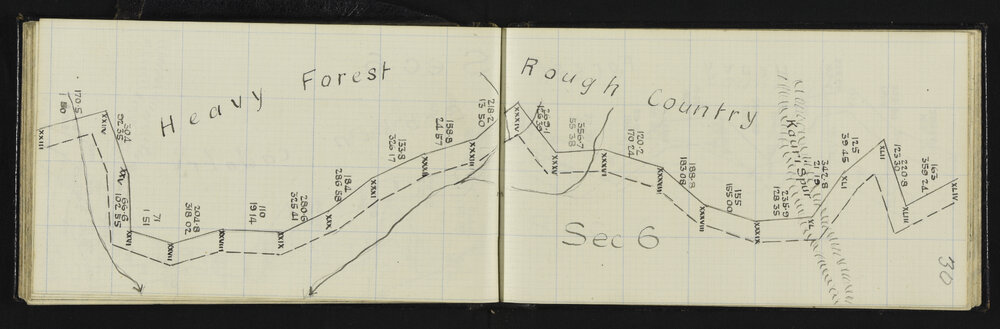 Heavy Forest Rough Country
Sec 6
30
XXIII
170.5
1 80
XXIV
304
XXV
66.6
102 55
XXVI
71
1 51
XXVII
204.8
318 02
XXVIII
110
19 14
XXIX
280.6
325 41
XXX
184
286 38
XXXI
133.8
326 17
XXXII
158.8
24 57
XXXIII
218.2
13 50
XXXIV
269.4
XXXV
356.7
55 38
XXXVI
120.2
170 24
XXXVII
188.8
183 08
XXXVIII
155
165 00
XXXIX
235.9
128 35
XL
Kaari Spur
342.8
XLI
125
39 45
XLII
220.8
123 30
XLIII
163
359 44
XLIV